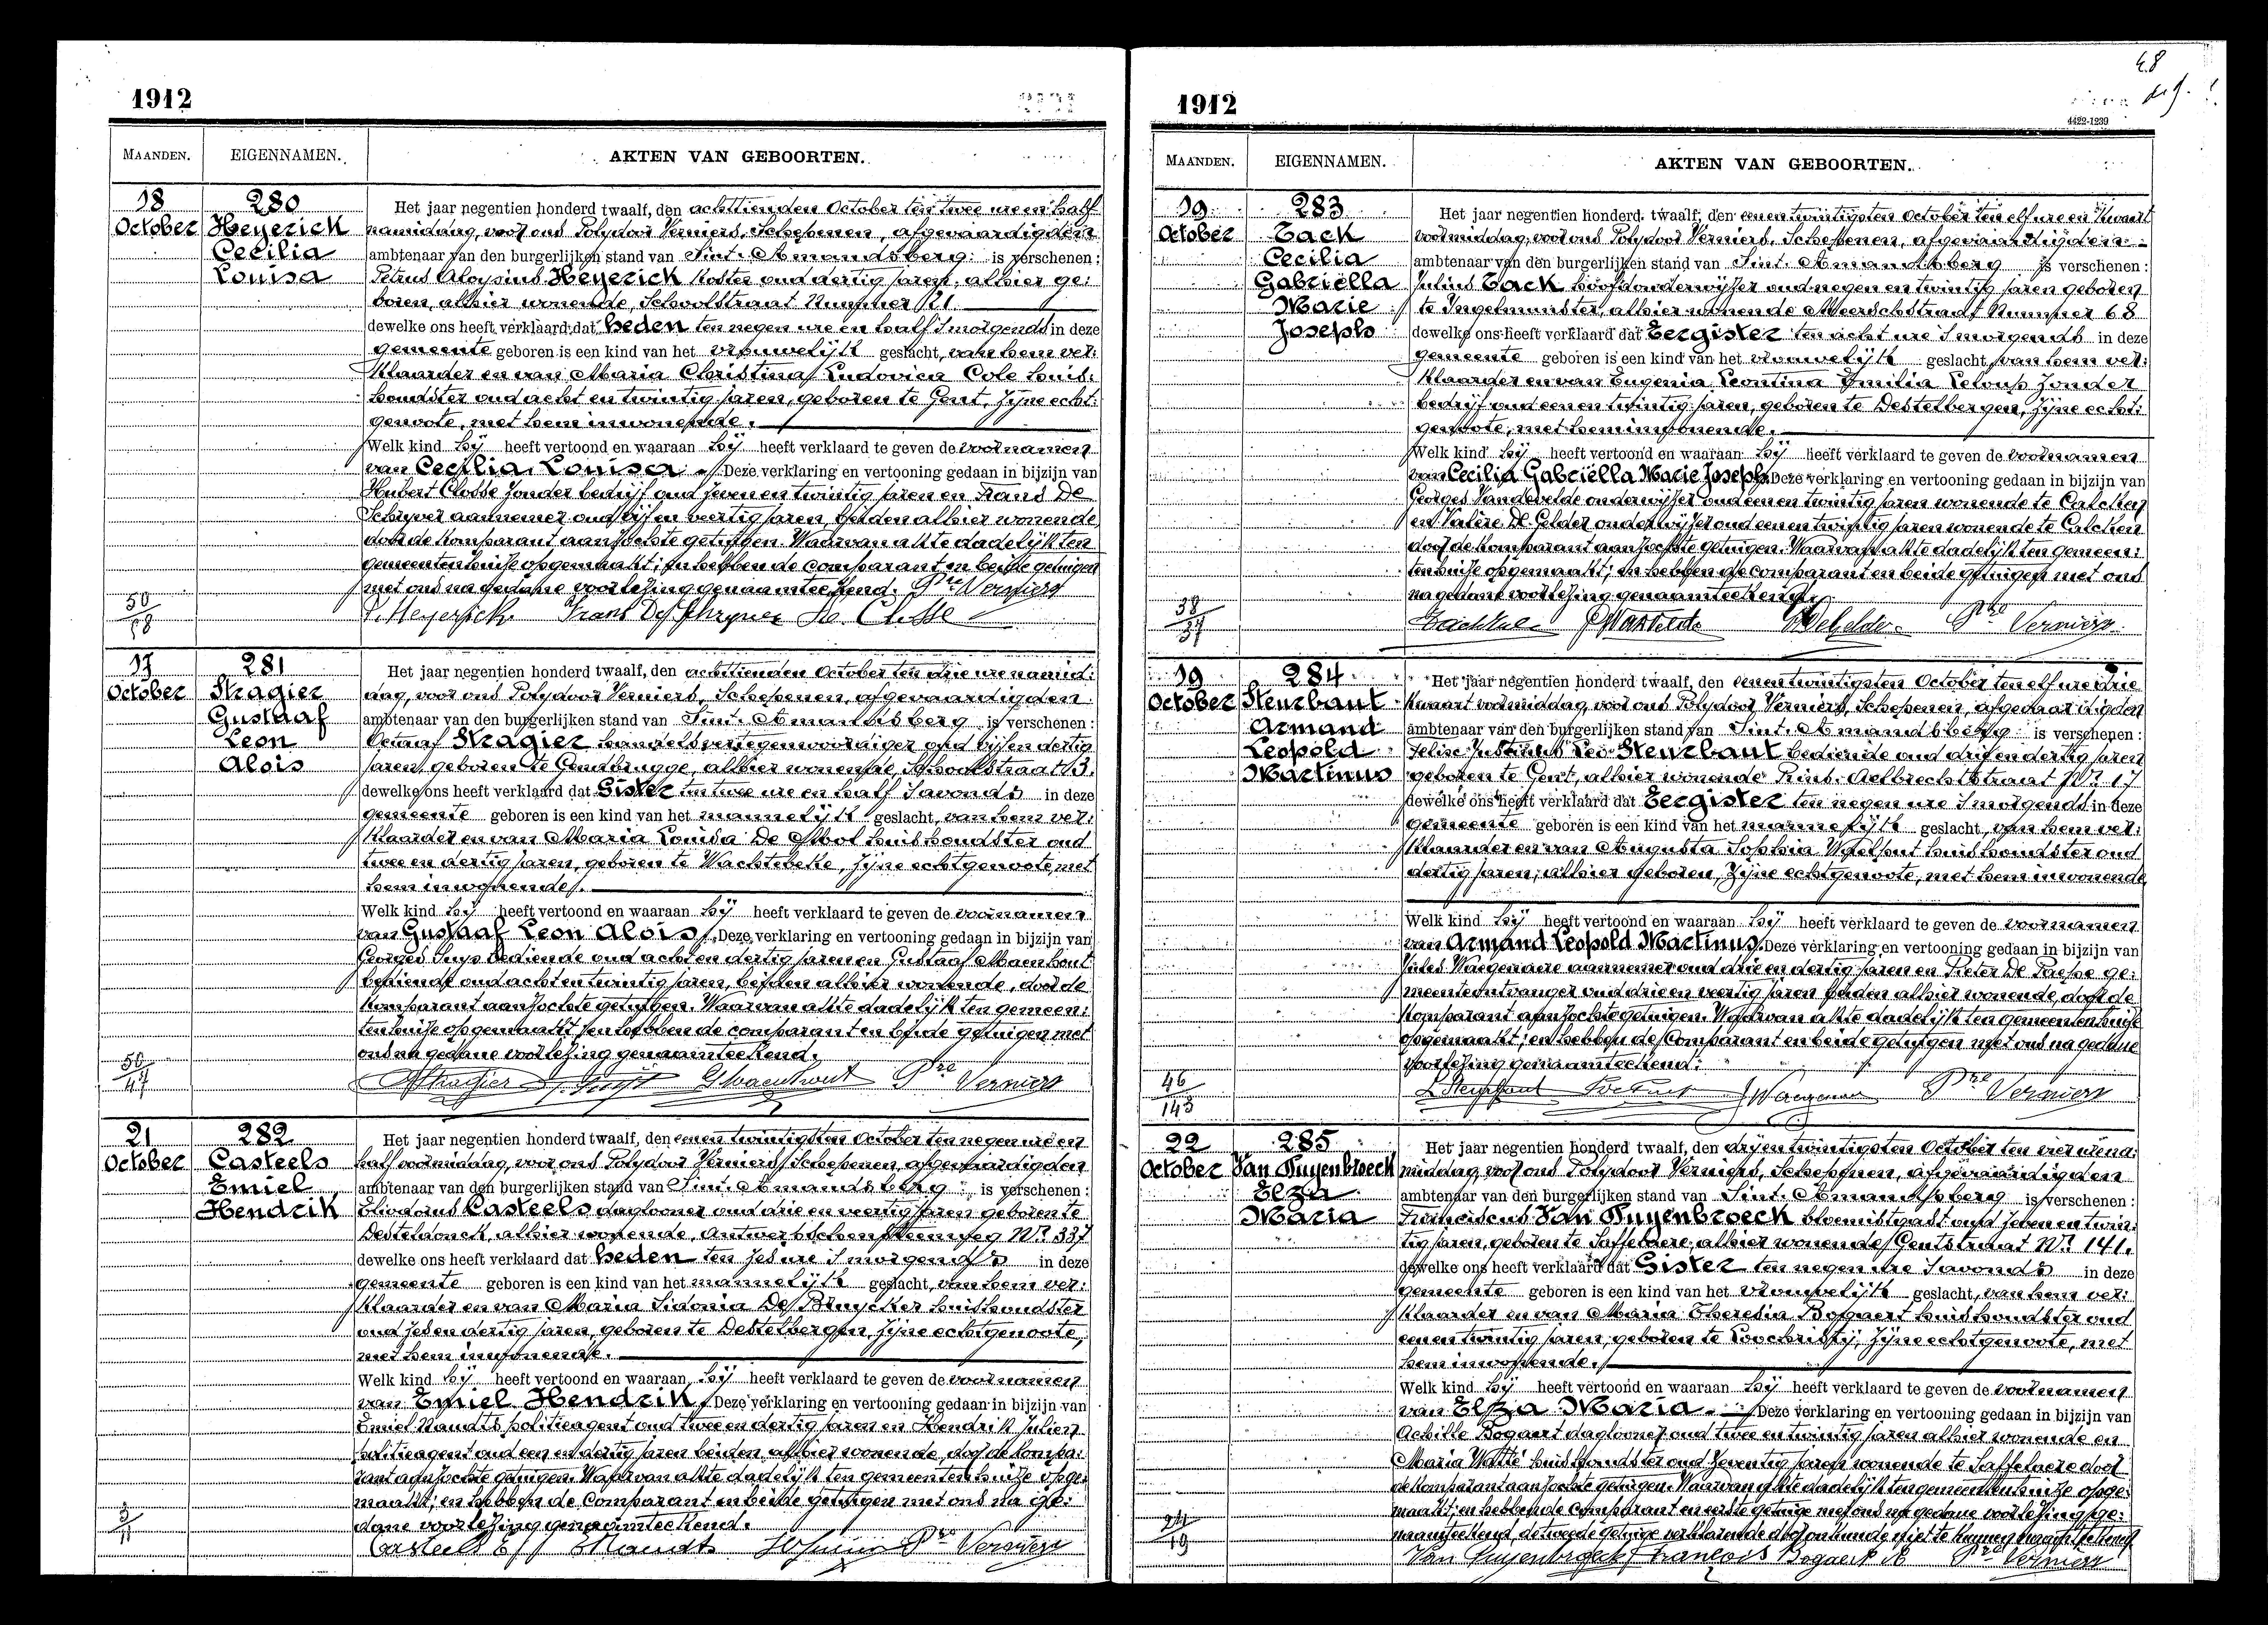 1912
MAANDEN.
EIGENNAMEN.
AKTEN VAN GEBOORTEN.
18
October
280
Heyerick
Cecilia
Louisa
Het jaar negentien honderd twaalf, den achttienden October ten twee ure en half
namiddag, voor ons Polydoor Verniers, Schepenen, afgevaardigden
ambtenaar van den burgerlijken stand van Sint-Amandsberg is verschenen:
Petrus Aloysius Heyerick koster oud dertig jaren, alhier ge:
boren, alhier wonende, Schoolstraat Nummer 121
dewelke ons heeft verklaard dat heden ten negen ure en half 's morgends in deze
gemeente geboren is een kind van het vrouwelijk geslacht, van hem ver:
klaarder en van Maria Christina Ludovica Cole huis:
houdster oud acht en twintig jaren, geboren te Gent, zijne echt:
genoote, met hem inwonende.
Welk kind hij heeft vertoond en waaraan hij heeft verklaard te geven de voornamen
van Cecilia Louisa. Deze verklaring en vertooning gedaan in bijzijn van
Hubert Closse zonder bedrijf oud zeven en twintig jaren en Frans De
Schryver aannemer oud vijf en veertig jaren, beiden alhier wonende,
door de komparant aanzochte getuigen. Waarvan akte dadelijk ten
gemeentenhuize opgemaakt; en hebben de comparant en beide getuigen
met ons na gedane voorlezing genaamteekend. Pre Verniers
P. Heyerick Frans De Schryver H. Closse
50
/
58
17
October
281
Stragier
Gustaaf
Leon
Alois
Het jaar negentien honderd twaalf, den achttienden October ten drie ure namid:
dag, voor ons Polydoor Verniers, Schepenen, afgevaardigden
ambtenaar van den burgerlijken stand van Sint-Amandsberg is verschenen:
Octaaf Stragier handelsvertegenwoordiger oud vijf en dertig
jaren, geboren te Gendbrugge, alhier wonende, Schoolstraat 13.
dewelke ons heeft verklaard dat Gister ten twee ure en half 's avonds in deze
gemeente geboren is een kind van het mannelijk geslacht, van hem ver:
klaarder en van Maria Louisa De Mol huishoudster oud
twee en dertig jaren, geboren te Wachtebeke, zijne echtgenoote, met
hem inwonende.
Welk kind hij heeft vertoond en waaraan hij heeft verklaard te geven de voornamen
van Gustaaf Leon Alois. Deze verklaring en vertooning gedaan in bijzijn van
Georges bediende oud acht en dertig jaren en Gustaaf Maenhout
bediende oud acht en twintig jaren, beiden alhier wonende, door de
komparant aanzochte getuigen. Waarvan akte dadelijk ten gemeen:
tenhuize opgemaakt; en hebben de comparant en beide getuigen met
ons na gedane voorlezing genaamteekend.
OStragier GMaenhout Pre Verniers
50
/
47
21
October
282
Casteels
Emiel
Hendrik
Het jaar negentien honderd twaalf, den eenen twintigsten October ten negen ure en
half voormiddag, voor ons Polydoor Verniers, Schepenen, afgevaardigden
ambtenaar van den burgerlijken stand van Sint-Amandsberg is verschenen:
Eliodorus Casteels daglooner oud drie en veertig jaren geboren te
Desteldonck, alhier wonende, Antwerpschen steenweg Nr 337
dewelke ons heeft verklaard dat heden ten zes ure 's morgends in deze
gemeente geboren is een kind van het mannelijk geslacht, van hem ver:
klaarder en van Maria Sidonia De Bruycker huishoudster
oud zes en dertig jaren, geboren te Destelbergen, zijne echtgenoote,
met hem inwonende.
Welk kind hij heeft vertoond en waaraan hij heeft verklaard te geven de voornamen
van Emiel Hendrik Deze verklaring en vertooning gedaan in bijzijn van
Emiel Naudts politieagent oud twee en dertig jaren en Hendrik Julien
politieagent oud een en dertig jaren beiden alhier wonende, door de kompa:
rant aanzochte getuigen. Waarvan akte dadelijk ten gemeentenhuize opge:
maakt; en hebben de Comparant en beide getuigen met ons na ge:
dane voorlezing genaamteekend.
Casteels E Naudts HJulien Pre Verniers
3
/
11
48
1912
4422-1239
MAANDEN.
EIGENNAMEN.
AKTEN VAN GEBOORTEN.
19
October
283
Tack
Cecilia
Gabriëlla
Marie
Joseph
Het jaar negentien honderd twaalf, den eenen twintigsten October ten elf ure en kwaart
voormiddag, voor ons Polydoor Verniers, Schepenen, afgevaardigden
ambtenaar van den burgerlijken stand van Sint-Amandsberg is verschenen:
Julius Tack hoofdonderwijzer oud negen en twintig jaren geboren
te Ingelmunster, alhier wonende Meerschstraat Nummer 68
dewelke ons heeft verklaard dat Eergister ten acht ure 's morgends in deze
gemeente geboren is een kind van het vrouwelijk geslacht, van hem ver:
klaarder en van Eugenia Leontina Emilia Leloup zonder
bedrijf oud een en twintig jaren, geboren te Destelbergen, zijne echt:
genoote, met hem inwonende.
Welk kind hij heeft vertoond en waaraan hij heeft verklaard te geven de voornamen
van Cecilia Gabriëlla Marie Joseph. Deze verklaring en vertooning gedaan in bijzijn van
Georges Vandevelde onderwijzer oud een en twintig jaren wonende te Calcken
en Valère De Gelder onderwijzer oud een en twintig jaren wonende te Calcken
door de komparant aanzochte getuigen. Waarvan akte dadelijk ten gemeen:
tenhuize opgemaakt; en hebben de comparant en beide getuigen met ons
na gedane voorlezing genaamteekend.
VDeGelder Pre Verniers
38
/
37
19
October
284
Steurbaut
Armand
Leopold
Martinus
Het jaar negentien honderd twaalf, den eenen twintigsten October ten elf ure drie
kwaart voormiddag, voor ons Polydoor Verniers, Schepenen, afgevaardigden
ambtenaar van den burgerlijken stand van Sint-Amandsberg is verschenen:
Felix Justinus Leo Steurbaut bediende oud drij en dertig jaren
geboren te Gent, alhier wonende Prins Aelbrechtstraat Nr 17
dewelke ons heeft verklaard dat Eergister ten negen ure 's morgends in deze
gemeente geboren is een kind van het mannelijk geslacht, van hem ver:
klaarder en van Augusta Sophia Waelput huishoudster oud
dertig jaren, alhier geboren, zijne echtgenoote, met hem inwonende
Welk kind hij heeft vertoond en waaraan hij heeft verklaard te geven de voornamen
van Armand Leopold Martinus. Deze verklaring en vertooning gedaan in bijzijn van
Jules Waegenaere aannemer oud drie en dertig jaren en Pieter De Paepe ge:
meenteontvanger oud drie en veertig jaren beiden alhier wonende, door de
komparant aanzochte getuigen. Waarvan akte dadelijk ten gemeentenhuize
opgemaakt; en hebben de Comparant en beide getuigen met ons na gedane
voorlezing genaamteekend:
Pre Verniers
46
/
143
22
October
285
Van Puyenbroeck
Elza
Maria
Het jaar negentien honderd twaalf, den drij en twintigsten October ten vier ure na:
middag, voor ons Polydoor Verniers, Schepenen, afgevaardigden
ambtenaar van den burgerlijken stand van Sint-Amandsberg is verschenen:
Franciscus Van Puyenbroeck bloemistgast oud zeven en twin:
tig jaren, geboren te Saffelaere, alhier wonende Gentstraat Nr 141.
dewelke ons heeft verklaard dat Gister ten negen ure 's avonds in deze
gemeente geboren is een kind van het vrouwelijk geslacht, van hem ver:
klaarder en van Maria Theresia Bogaert huishoudster oud
een en twintig jaren, geboren te Loochristij, zijne echtgenoote, met
hem inwonende.
Welk kind hij heeft vertoond en waaraan hij heeft verklaard te geven de voornamen
van Elza Maria. Deze verklaring en vertooning gedaan in bijzijn van
Achille Bogaert daglooner oud twee en twintig jaren alhier wonende en
Maria Watté huishoudster oud zeventig jaren wonende te Saffelaere door
de komparant aanzochte getuigen. Waarvan akte dadelijk ten gemeentenhuize opge:
maakt; en hebben de comparant en eerste getuige met ons na gedane voorlezing ge:
naamteekend, de tweede getuige verklarende door onkunde niet te kunnen naamteekend
Van Puyenbroeck François Bogaert A Pre Verniers
24
/
19